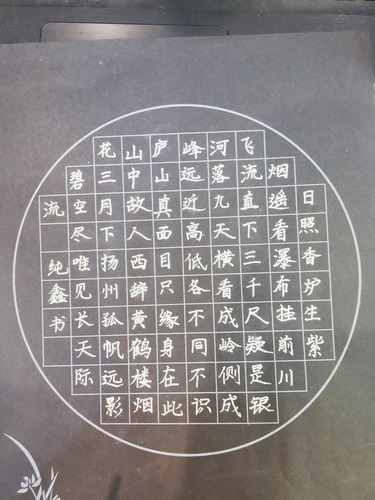 日照香炉生紫
烟遥看瀑布挂前川
飞流直下三千尺疑是银
河落九天横看成岭侧成
峰远近高低各不同不识
庐山真面目只缘身在此
山中故人西辞黄鹤楼烟
花三月下扬州孤帆远影
碧空尽唯见长天际
流
纯鑫书